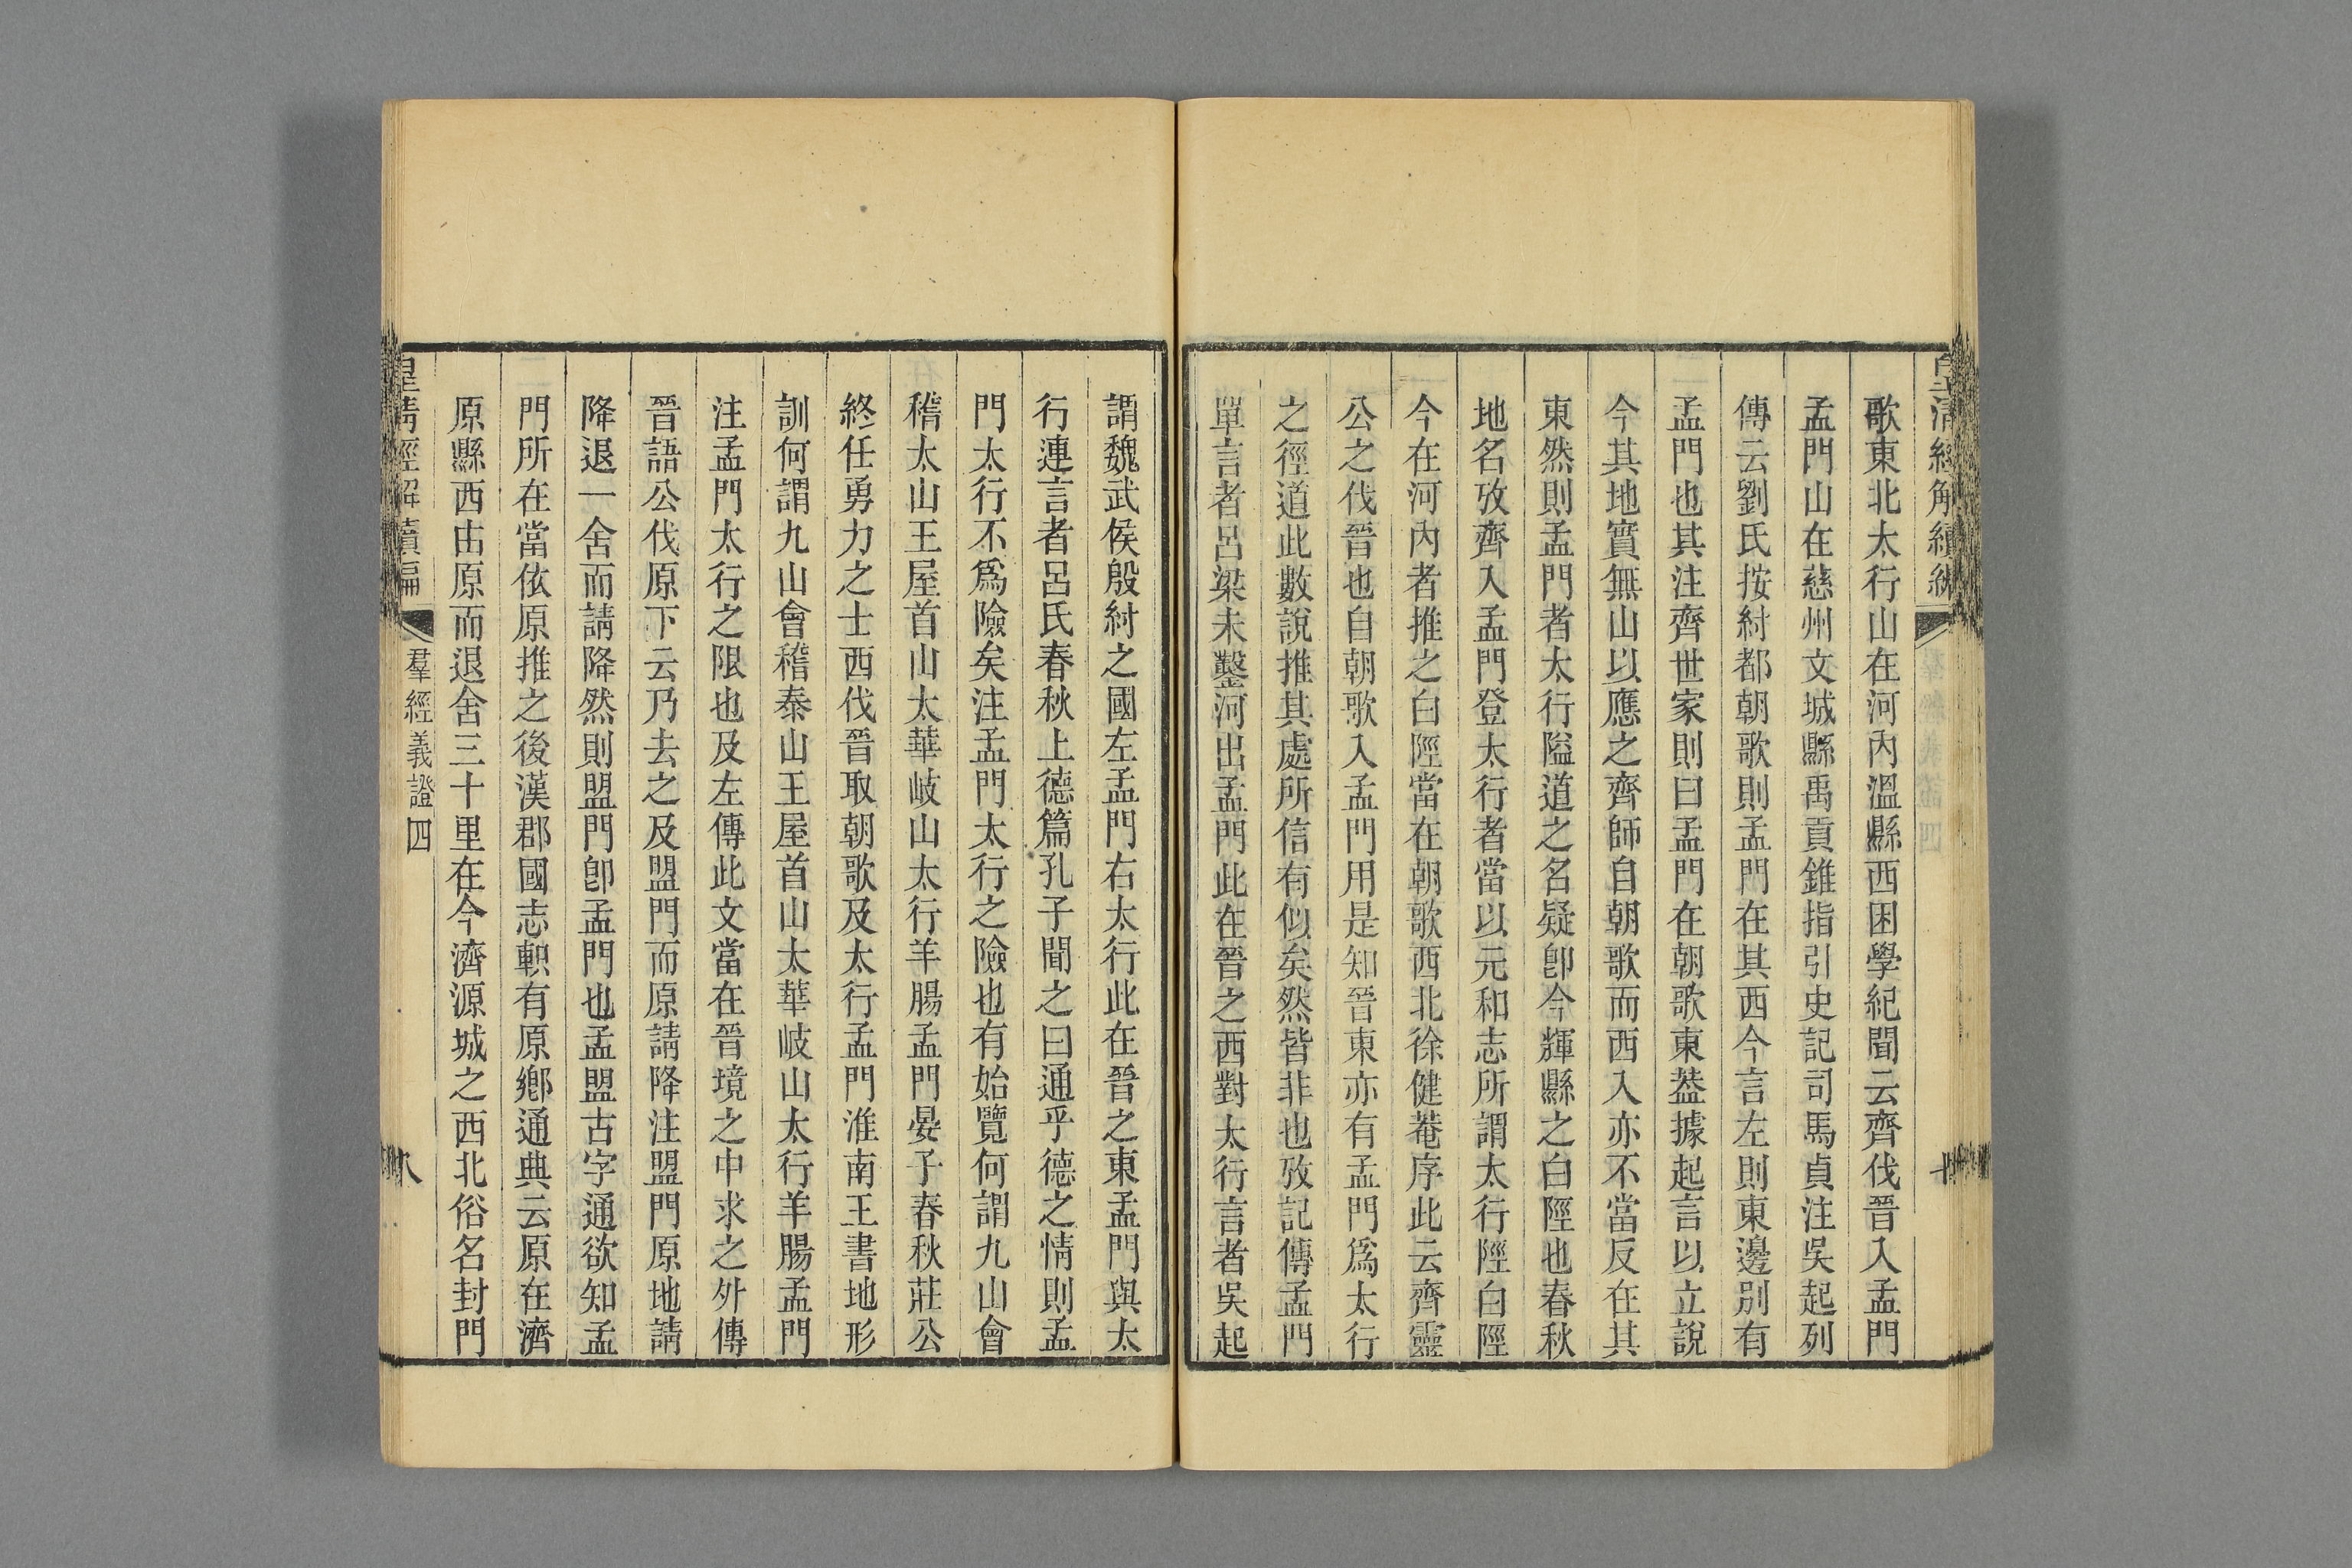 歌東北太行山在河內溫縣西困學紀聞云齊伐晉入孟門
孟門山在慈州文城縣禹貢錐指引史記司馬貞注吳起列
傳云劉氏按紂都朝歌則孟門在其西今言左則東邊別有
孟門也其注齊世家則曰孟門在朝歌東葢據起言以立說
今其地實無山以應之齊師自朝歌而西入亦不當反在其
東然則孟門者太行隘道之名疑卽今輝縣之白陘也春秋
地名攷齊入孟門登太行者當以元和志所謂太行陘白陘
今在河內者推之白陘當在朝歌西北徐健菴序此云齊靈
公之伐晉也自朝歌入孟門用是知晉東亦有孟門爲太行
之徑道此數說推其處所信有似矣然皆非也攷記傳孟門
單言者呂梁未鑿河出孟門此在晉之西對太行言者吳起
謂魏武侯殷紂之國左孟門右太行此在晉之東孟門與太
行連言者呂氏春秋上德篇孔子聞之曰通乎德之情則孟
門太行不爲險矣注孟門太行之險也有始覽何謂九山會
稽太山王屋首山太華岐山太行羊腸孟門晏子春秋莊公
終任勇力之士西伐晉取朝歌及太行孟門淮南王書地形
訓何謂九山會稽泰山王屋首山太華岐山太行羊腸孟門
注孟門太行之限也及左傳此文當在晉境之中求之外傳
晉語公伐原下云乃去之及盟門而原請降注盟門原地請
降退一舍而請降然則盟門卽孟門也孟盟古字通欲知孟
門所在當依原推之後漢郡國志軹有原鄉通典云原在濟
原縣西由原而退舍三十里在今濟源城之西北俗名封門
皇清經解續編
羣經義證四
八